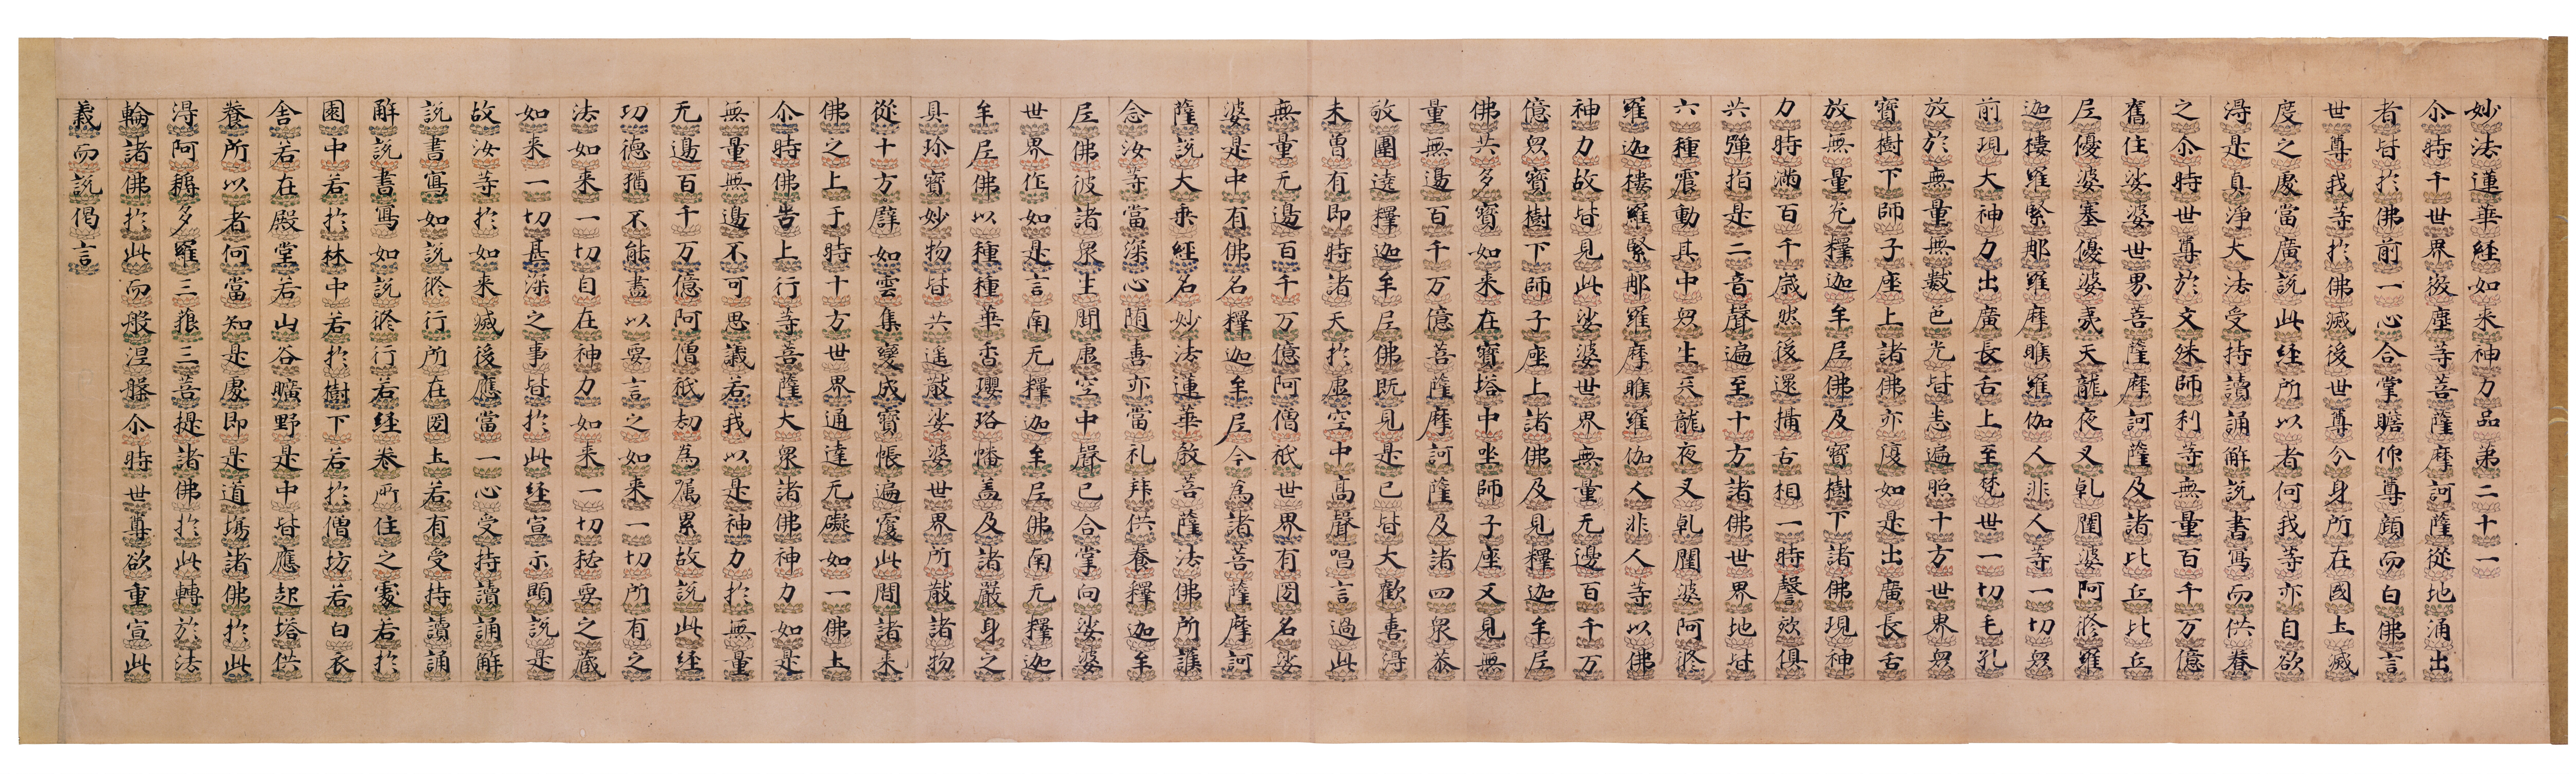 妙法蓮華経如来神力品第二十一
尒時千世界微塵等菩薩摩訶薩從地涌出
者皆於佛前一心合掌瞻仰尊顔而白佛言
世尊我等於佛滅後世尊分身所在國土滅
度之處當廣說此経所以者何我等亦自欲
得是真淨大法受持讀誦解說書寫而供養
之尒時世尊於文殊師利等無量百千万億
舊住娑婆世界菩薩摩訶薩及諸比丘比丘
尼優婆塞優婆夷天龍夜叉乹闥婆阿脩羅
迦樓羅緊那羅摩睺羅伽人非人等一切衆
前現大神力出廣長舌上至梵世一切毛孔
放於無量無數色光皆悉遍照十方世界衆
寶樹下師子座上諸佛亦復如是出廣長舌
放無量光釋迦牟尼佛及寶樹下諸佛現神
力時滿百千歳然後還攝舌相一時謦欬俱
共彈指是二音聲遍至十方諸佛世界地皆
六種震動其中衆生天龍夜叉乹闥婆阿脩
羅迦樓羅緊那羅摩睺羅伽人非人等以佛
神力故皆見此娑婆世界無量无邊百千万
億衆寶樹下師子座上諸佛及見釋迦牟尼
佛共多寶如来在寶塔中坐師子座又見無
量無邊百千万億菩薩摩訶薩及諸四衆恭
敬圍遶釋迦牟尼佛既見是已皆大歡喜得
未曽有即時諸天於虛空中髙聲唱言過此
無量无邊百千万億阿僧祇世界有國名娑
婆是中有佛名釋迦牟尼今為諸菩薩摩訶
薩說大乗經名妙法蓮華教菩薩法佛所護
念汝等當深心随喜亦當礼拜供養釋迦牟
尼佛彼諸衆生聞虛空中聲已合掌向娑婆
世界作如是言南无釋迦牟尼佛南无釋迦
牟尼佛以種種華香瓔珞幡盖及諸嚴身之
具珎寶妙物皆共遥散娑婆世界所散諸物
從十方辟如雲集變成寶帳遍覆此間諸来
佛之上于時十方世界通達无礙如一佛土
尒時佛告上行等菩薩大衆諸佛神力如是
無量無邊不可思議若我以是神力於無量
无邊百千万億阿僧祇劫為嘱累故說此経
功德猶不能盡以要言之如来一切所有之
法如来一切自在神力如来一切秘要之藏
如来一切甚深之事皆於此経宣示顯說是
故汝等於如来滅後應當一心受持讀誦解
說書寫如說脩行所在國土若有受持讀誦
解說書寫如說脩行若経卷所住之處若於
園中若於林中若於樹下若於僧坊若白衣
舍若在殿堂若山谷曠野是中皆應起塔供
養所以者何當知是處即是道場諸佛於此
得阿耨多羅三藐三菩提諸佛於此轉於法
輪諸佛於此而般涅槃尒時世尊欲重宣此
義而說偈言